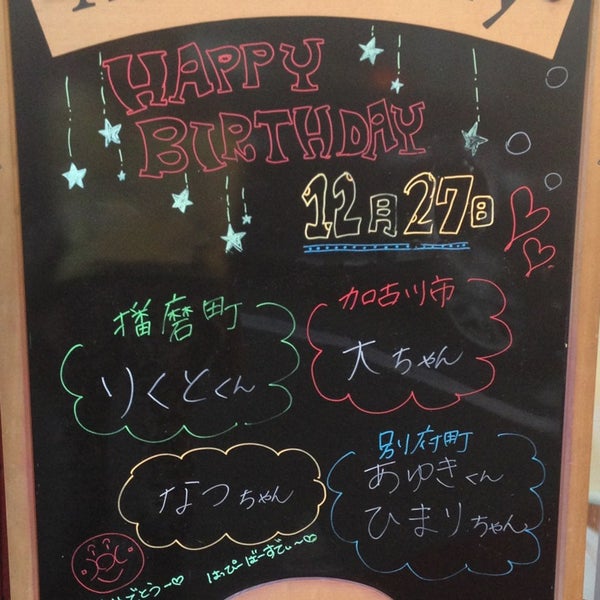 HAPPY
BIRTHDAY
12月27日
播磨町
りくとくん
加古川市
大ちゃん
なつちゃん
別府町
あゆきくん
ひまりちゃん
はっぴーばーすでぃ〜♡
でとうー♡